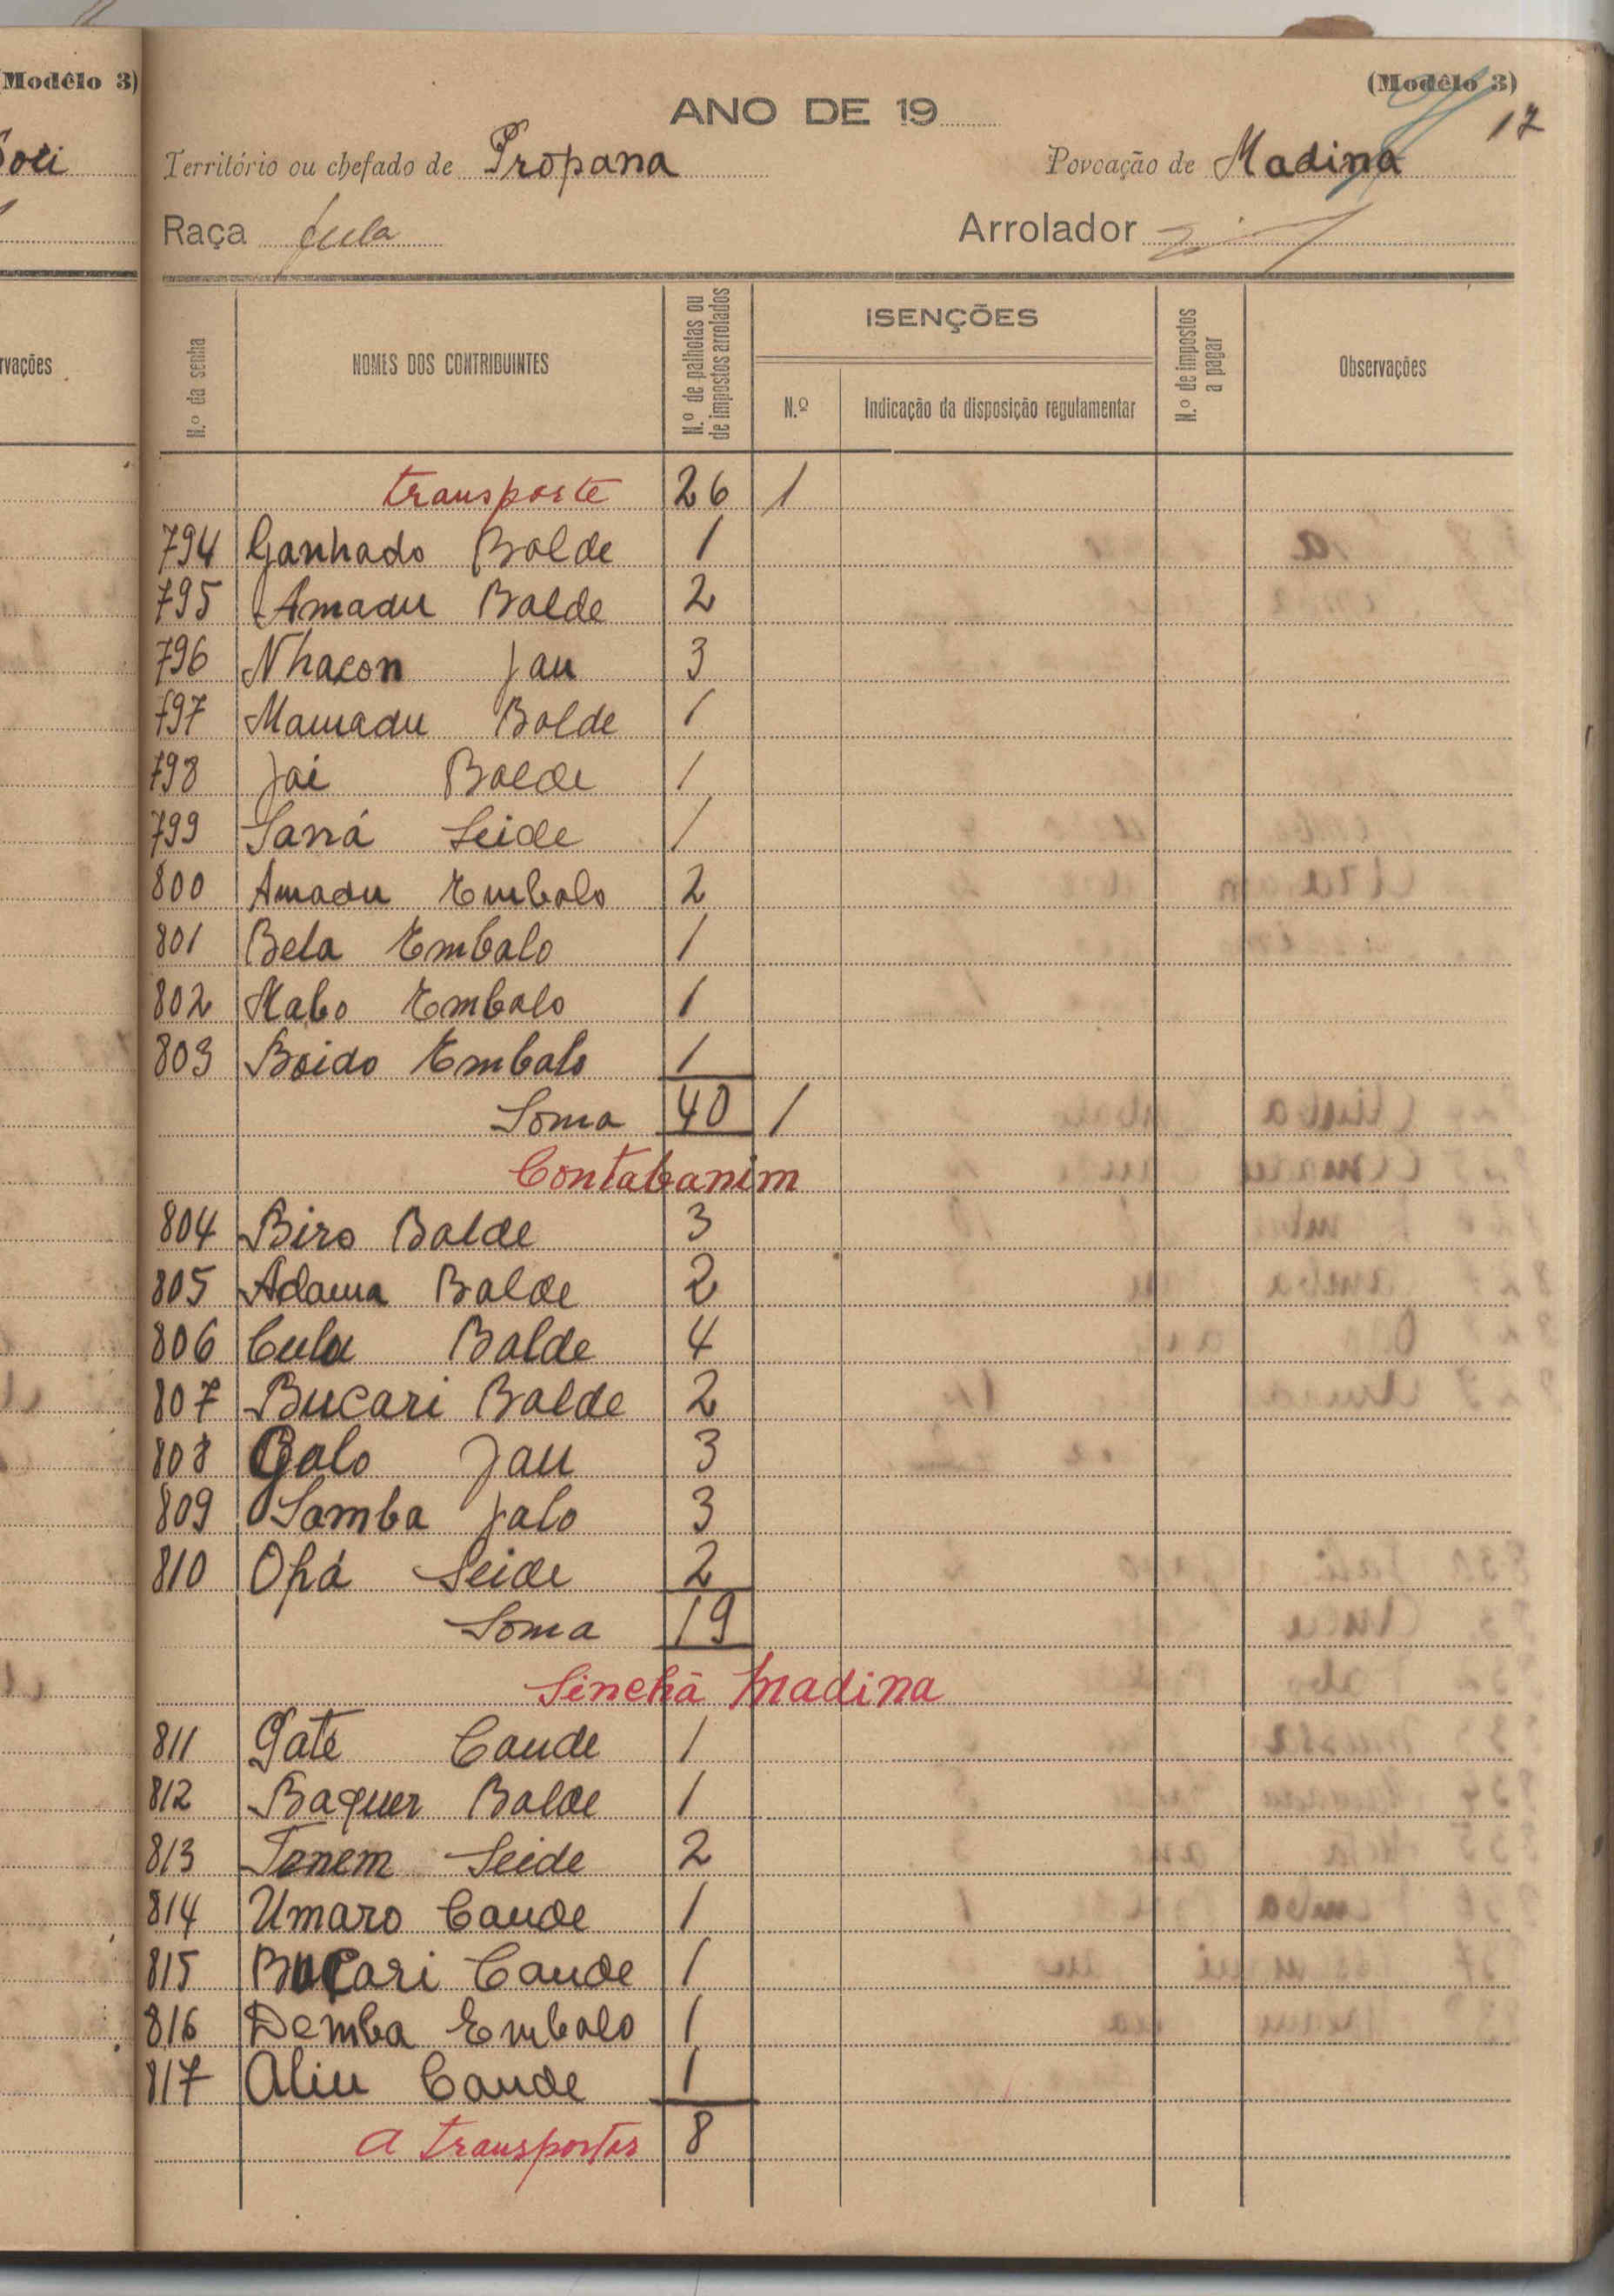 (Modêlo 3)
rvações
(Modêlo 3)
12
ANO DE 19
Território ou chefado de Propana
Povoação de Madina
Raça fula
Arrolador
N.º da senha
NOMES DOS CONTRIBUINTES
N.º de palhotas ou de impostos arrolados
ISENÇÕES
N.º
Indicação da disposição regulamentar
N.º de impostos a pagar
Observações
transporte 26 1
794 Ganhado Balde 1
795 Amadu Balde 2
796 Nhacon Jau 3
797 Mamadu Balde 1
798 Jai Balde 1
799 Saná Seide 1
800 Amadu Embalo 2
801 Bela Embalo 1
802 Mabo Embalo 1
803 Boido Embalo 1
Soma 40 1
Contabanim
804 Biro Balde 3
805 Adama Balde 2
806 Cula Balde 4
807 Bucari Balde 2
808 Galo Jau 3
809 Samba Jalo 3
810 Ofá Seide 2
Soma 19
Sinchã Madina
811 Paté Cande 1
812 Baquer Balde 1
813 Tonem Seide 2
814 Umaro Cande 1
815 Bucari Cande 1
816 Demba Embalo 1
817 Aliu Cande 1
a transportar 8